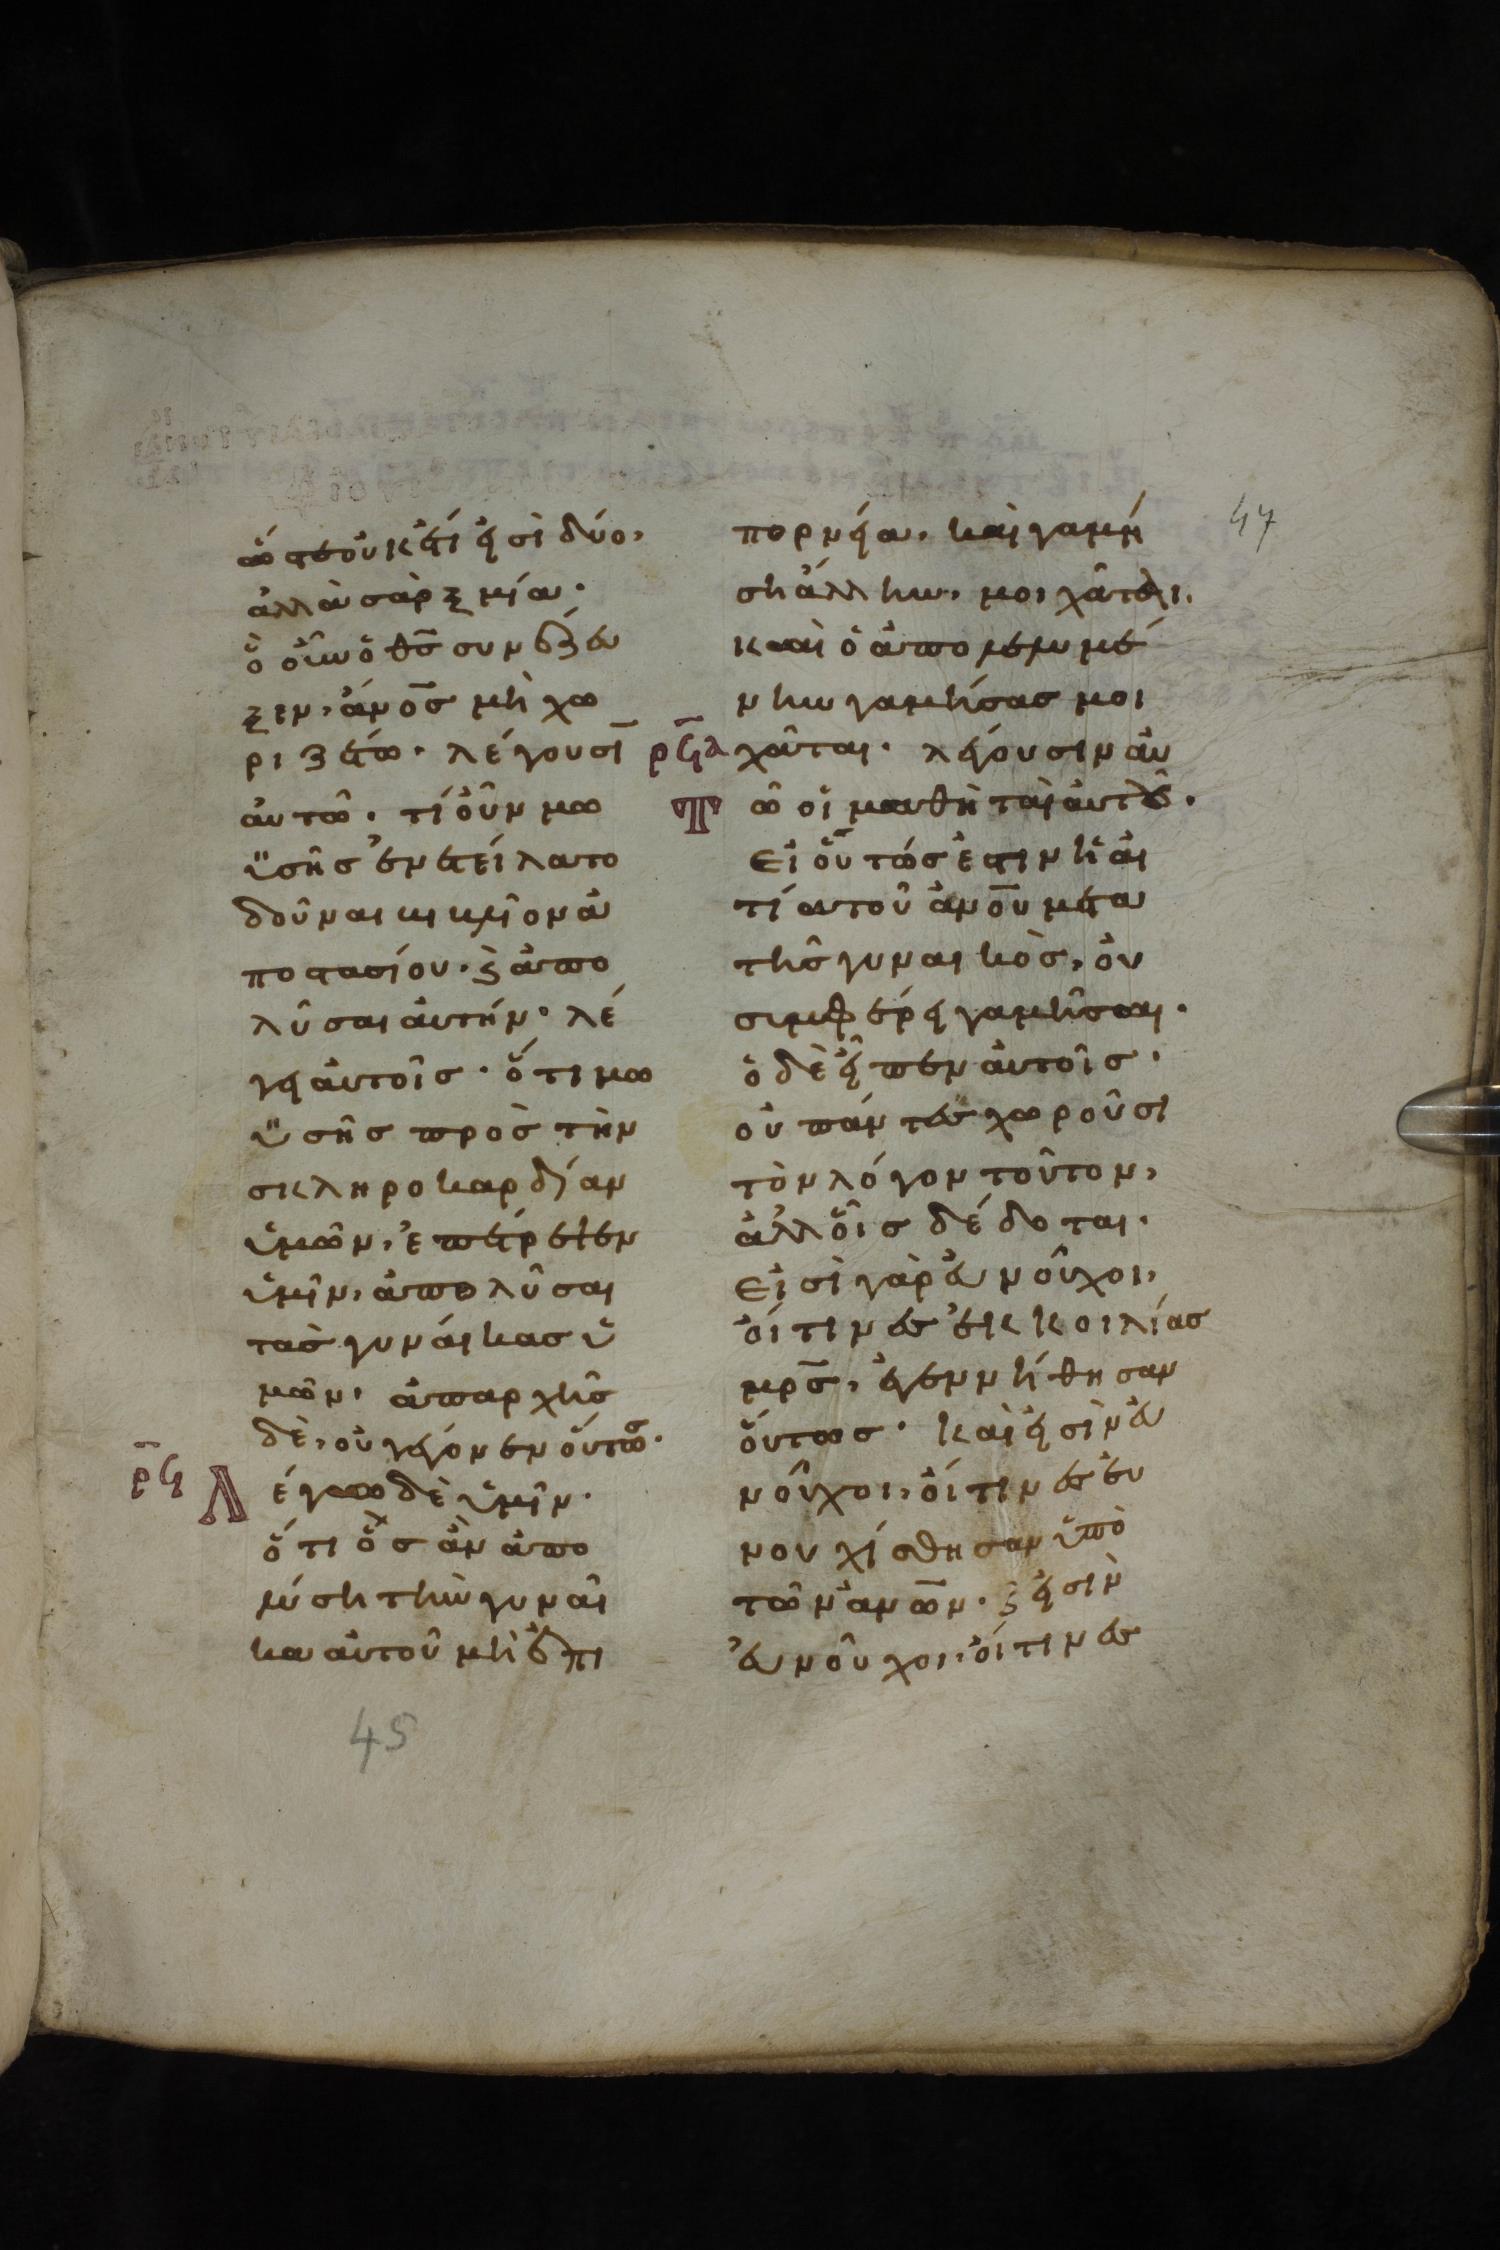 47
ὥστε οὐκέτι εἰσὶ δύο,
ἀλλὰ σὰρξ μία.
ὃ οὖν ὁ θ̅ς̅ συνέζευ
ξεν, ἄν̅ο̅ς̅ μὴ χω
ριζέτω. λέγουσῑ
αὐτῶ. τί οὖν μω
ϋσῆς ἐνετείλατο
δοῦναι βιβλίον ἀ
ποστασίου. ϗ ἀπο
λῦσαι αὐτήν. λέ
γει αὐτοῖς. ὅτι μω
ϋσῆς πρὸς τὴν
σκληροκαρδίαν
ὑμῶν, ἐπέτρεψεν
ὑμῖν, ἀπολῦσαι
τὰς γυναίκας ὑ
μῶν, ἀπαρχῆς
δὲ, οὐ γέγονεν οὕτως.
ρ̅ϟ̅
Λέγω δὲ ὑμῖν.
ὅτι ὃς ἂν ἀπο
λύσῃ τὴν γυναῖ
κα αὐτοῦ μὴ ἐπι
πορνεία, καὶ γαμή
σῃ ἄλλην, μοιχᾶται,
καὶ ὁ ἀπολελυμέ
νην γαμήσας μοι
ρ̅ϟ̅α̅
χᾶται. λέγουσιν αὐ
Τ
ῶ οἱ μαθηταὶ αὐτοῦ.
Εἰ οὕτως ἐστιν ἡ αἰ
τία τοῦ ἀν̅ο̅υ̅ μετα
τῆς γυναικὸς, οὐ
συμφέρει γαμῆσαι.
ὁ δὲ εἶπεν αὐτοῖς.
οὐ πάντες χωροῦσι
τὸν λόγον τοῦτον,
ἀλλ' οἷς δέδοται.
Εἰσὶ γὰρ εὐνοῦχοι,
οἵτινες ἐκ κοιλίας
μρ̅ς̅, ἐγεννήθησαν
οὕτως. καὶ εἰσὶν εὐ
νοῦχοι, οἵτινες εὐ
νουχίσθησαν ὑπὸ
τῶν ἀν̅ω̅ν. ϗ εἰσὶν
εὐνοῦχοι, οἵτινες
45